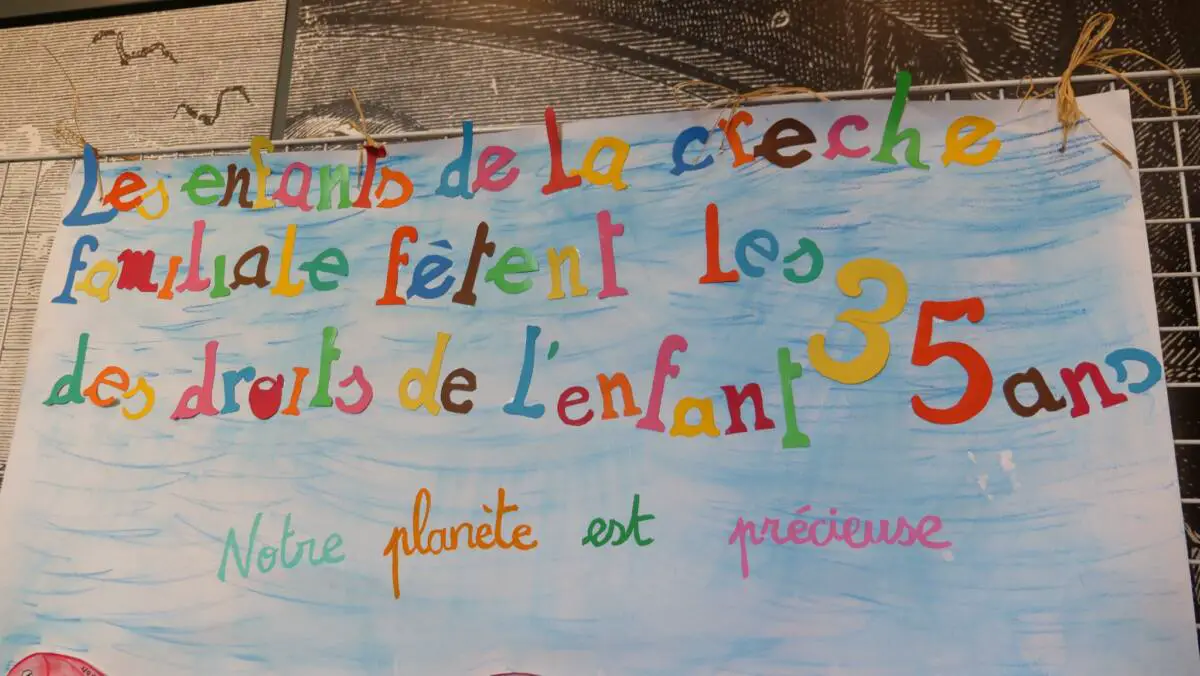 Les enfants de la creche
familiale fêtent les 35 ans
des droits de l'enfant
Notre planète est précieuse